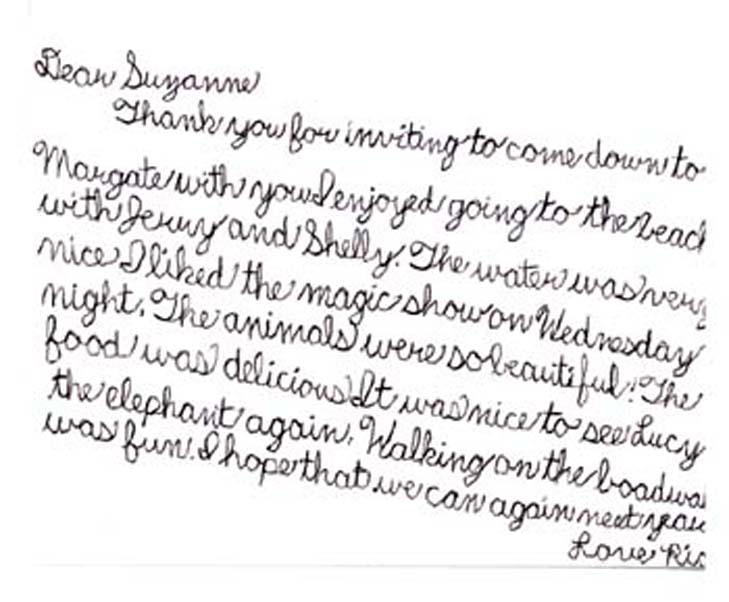 Dear Suzanne
Thank you for inviting to come down to
Margate with you I enjoyed going to the beach
with Jerry and Shelly. The water was very
nice I liked the magic show on Wednesday
night. The animals were so beautiful! The
food was delicious It was nice to see Lucy
the elephant again. Walking on the boadwa
was fun. I hope that we can again next year
Love Ric